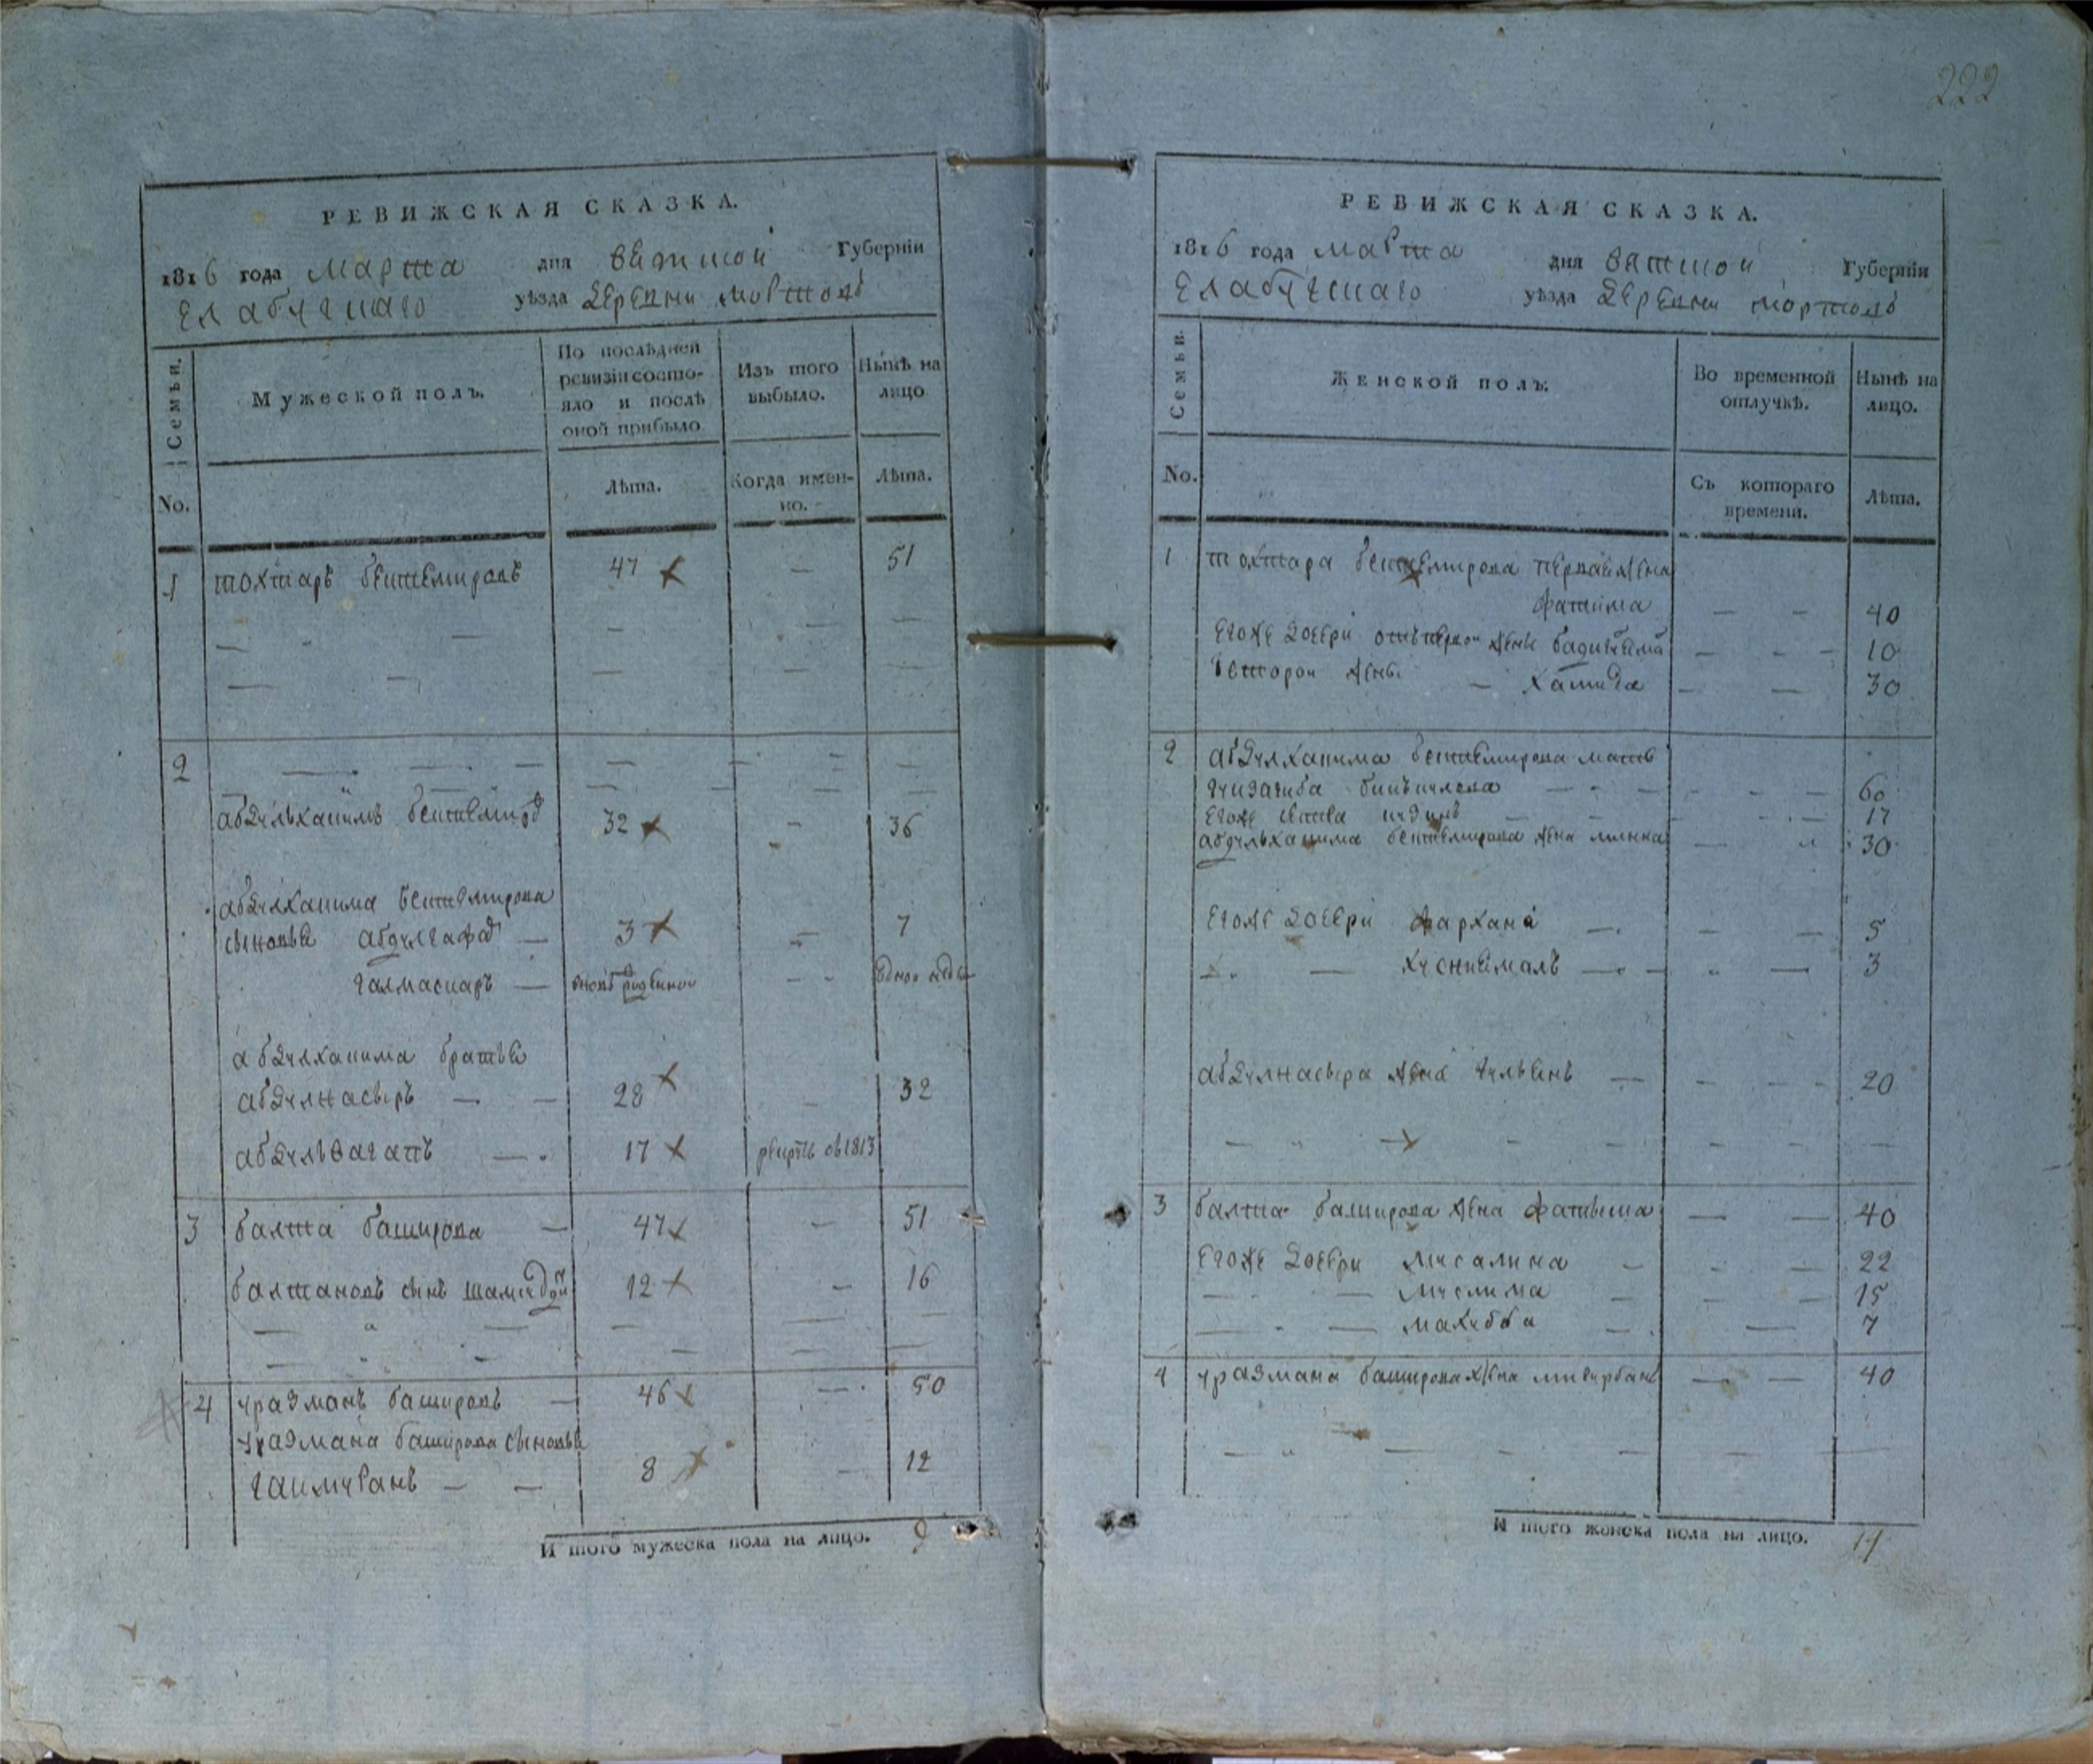 222
РЕВИЖСКАЯ СКАЗКА.
1816 года марта дня вятской Губернїи
Елабугскаго уѣзда деревни мортовъ
Семьи.
Мужеской полъ.
По послѣдней ревизїи состо-
яло и послѣ оной прибыло.
Изъ того выбыло.
Нынѣ на лицо
No.
Лѣта.
Когда имен-
но.
Лѣта.
1 тохтаръ бектемировъ 47 — 51
2
абдулхакимъ бектемировъ 32 — 36
абдулхакима бектемирова
сыновья абдулгафаръ — 3 — 7
галмаскаръ — вновь рожденной — —
абдулхакима братья
абдулнасыръ — — 28 — 32
абдулвагапъ — 17 рекрутъ въ 1813
3 балта баширова — 47 — 51
балтановъ сынъ 12 — 16
4 уразманъ башировъ — 46 — 50
уразмана баширова сыновья
— — 8 — 12
И того мужеска пола на лицо. 9
РЕВИЖСКАЯ СКАЗКА.
1816 года марта дня вятской Губернїи
Елабугскаго уѣзда деревни мортовъ
Семьи.
Женской полъ.
Во временной
отлучкѣ.
Нынѣ на
лицо.
No.
Съ котораго
времени.
Лѣта.
1 тохтара бектемирова первая жена
фатима — — 40
егоже дочери отъ первой жены — — 10
второй жены — хамида — — 30
2 абдулхакима бектемирова мать
— — 60
егоже — — 17
абдулхакима бектемирова жена — 30
егоже дочери фархана — — — 5
— — — — 3
абдулнасыра жена — — — 20
3 балта баширова жена фатыма — — 40
егоже дочери мусалима — — — 22
— — муслима — — — 15
— — махубба — — 7
4 уразмана баширова жена — — 40
И того женска пола на лицо. 14